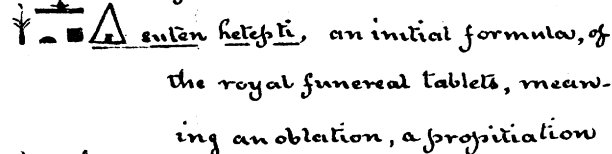 𓇓𓏏𓊵𓊪𓏙 suten hetepti, an initial formula, of
the royal funereal tablets, mean-
ing an oblation, a propitiation